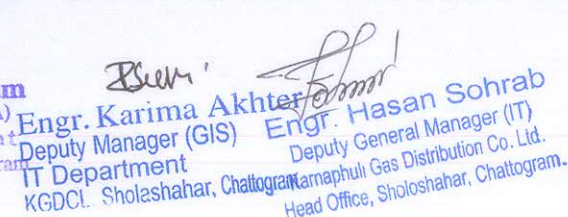 m
Engr. Karima Akhter
Deputy Manager (GIS)
IT Department
KGDCL Sholashahar, Chattogram.
Engr. Hasan Sohrab
Deputy General Manager (IT)
Karnaphuli Gas Distribution Co. Ltd.
Head Office, Sholoshahar, Chattogram.